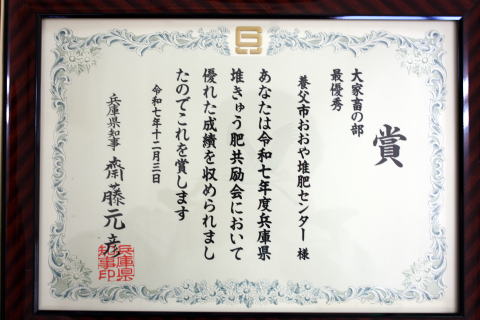 賞
大家畜の部
最優秀
養父市おおや堆肥センター 様
あなたは令和七年度兵庫県
堆きゅう肥共励会において
優れた成績を収められまし
たのでこれを賞します
令和七年十二月三日
兵庫県知事 齋藤元彦
兵庫県
知事印